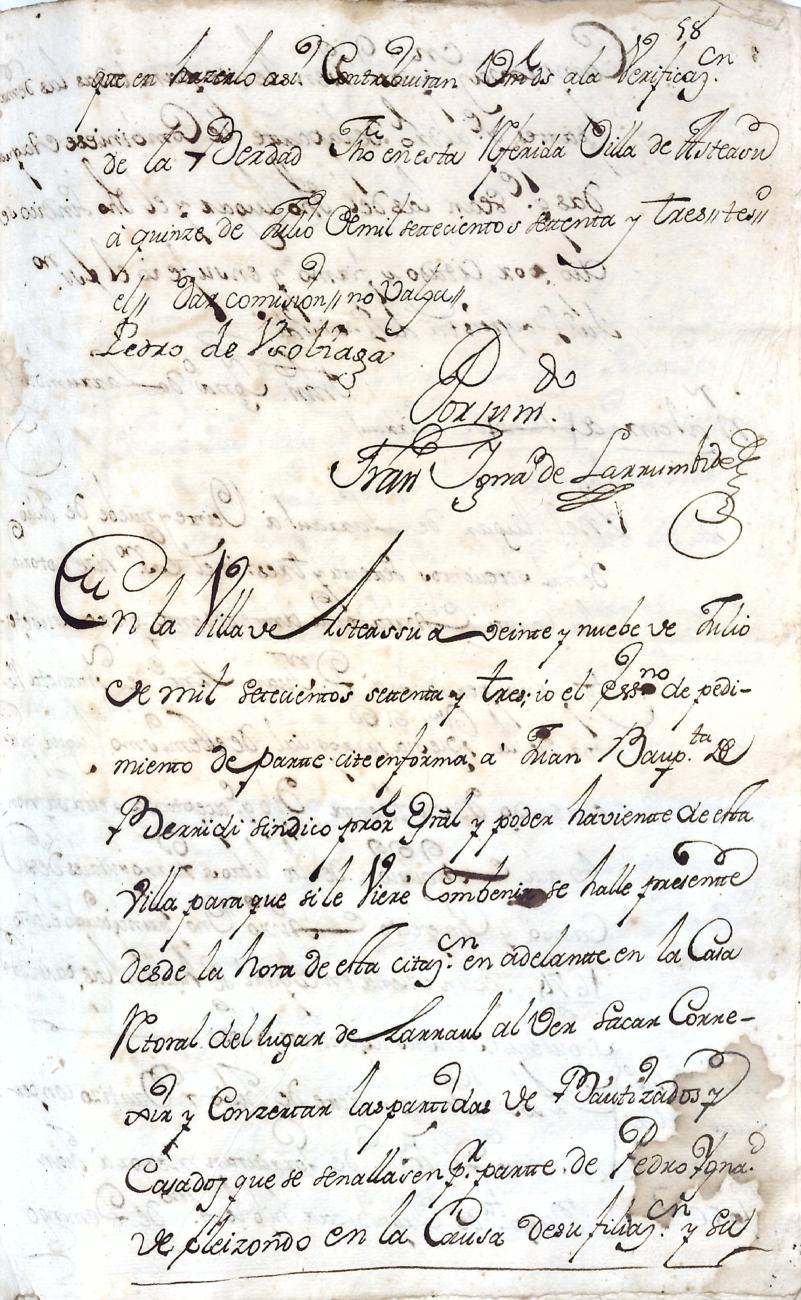 58
que en hazerlo asi Contribuiran Vmds ala Verificazn.
de la Verdad Fho en esta Referida Villa de Asteasu
a quinze de Julio de mil settecientos settenta y tres // tesdo //
el // Dar comision // no Valga //
Pedro de Ysobiaga
Por su md.
Fran Ygnao de Larrumbide
En la Villa de Asteassu a veinte y nuebe de Julio
de mil setecientos settenta y tres, io el Essno de pedi-
miento de partte cite en forma a Juan Baupta de
Berridi sindico pror Gral y poder haviente de esta
Villa para que si le Viere Combenir se halle presentte
desde la hora de esta citazn. en adelantte en la Casa
Rtoral del lugar de Larraul al Ver sacar Corre-
xir y Conzertar las partidas de Bautizados y
Casados que se senallasen pr. partte de Pedro Ygnao
de Eleizondo en la Causa de su filiazn. y su